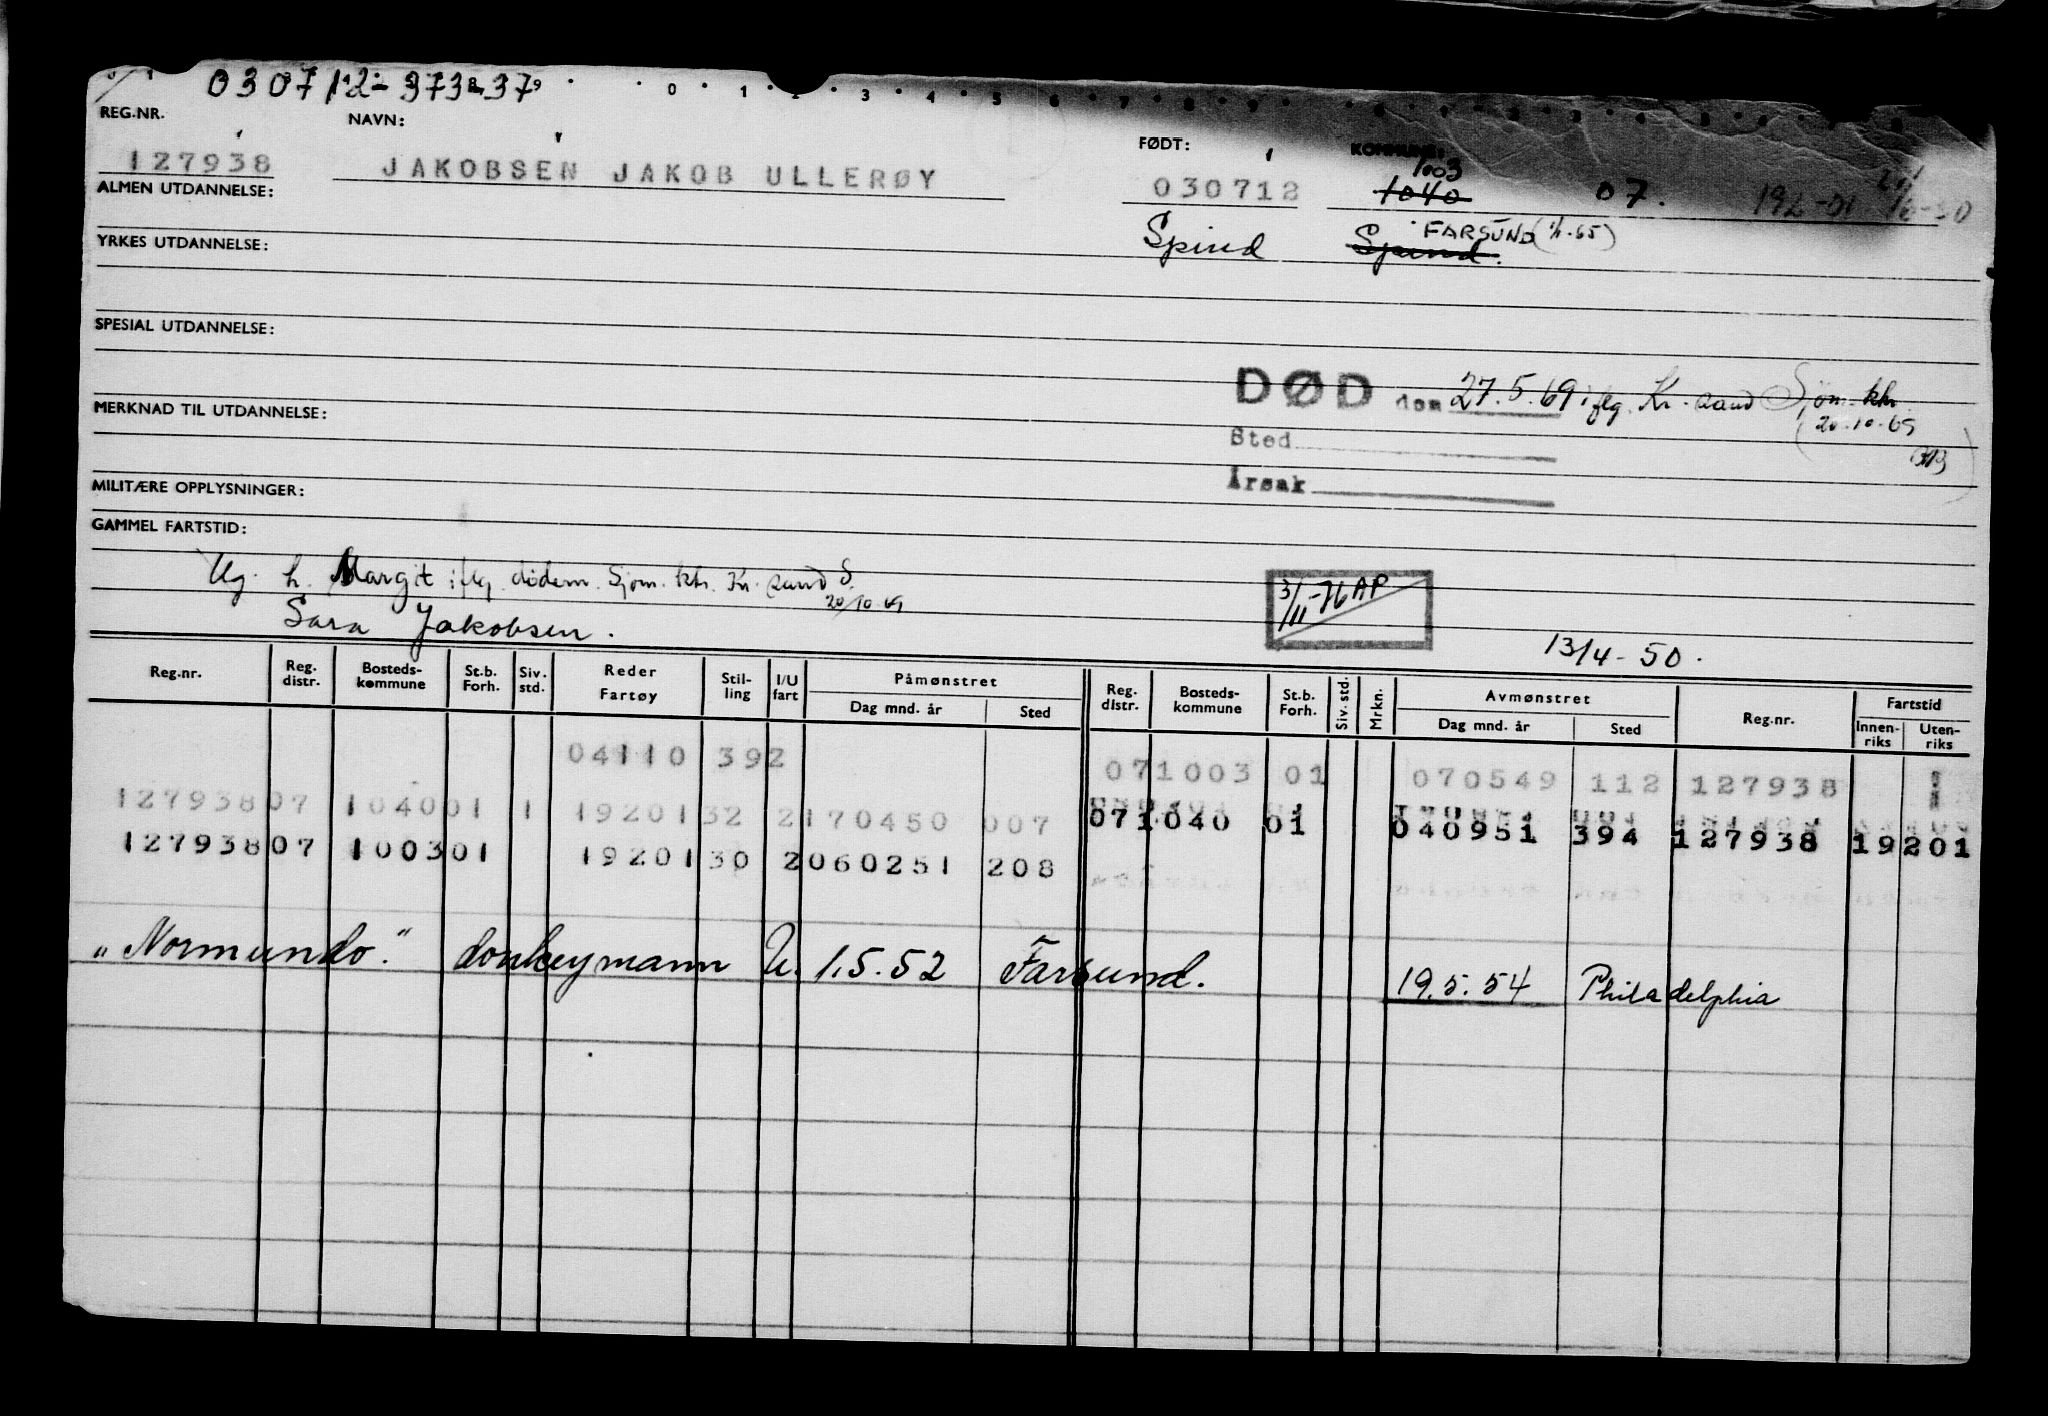 030712-37337
0 1 2 3 4 5 6 7 8 9
REG.NR. NAVN: FØDT: KOMMUNE:
1003
127938 JAKOBSEN JAKOB ULLERØY 030712 1040 07.
ALMEN UTDANNELSE:
Spind Spind. FARSUND (1/1-65)
YRKES UTDANNELSE:
SPESIAL UTDANNELSE:
DØD den 27.5.69 iflg. Kr.sand Sjøm.ktr.
20-10-69
MERKNAD TIL UTDANNELSE:
Sted
Årsak
MILITÆRE OPPLYSNINGER:
GAMMEL FARTSTID:
Ug. h. Margit iflg. dødsm. Sjøm.ktr. Kr.sand S.
20/10-69
3/11-76 AP
Sara Jakobsen.
13/4-50.
Reg.nr. Reg. distr. Bosteds-kommune St.b. Forh. Siv. std. Reder Fartøy Stil-ling I/U fart Påmønstret Dag mnd. år Sted Reg. distr. Bosteds-kommune St.b. Forh. Siv. std. Mrkn. Avmønstret Dag mnd. år Sted Reg.nr. Fartstid Innen-riks Uten-riks
04110 392 071003 01 070549 112 127938
127938 07 1040 01 1 19201 32 2 170450 007
071040 01 040951 394 127938 19201
127938 07 1003 01 19201 30 2 060251 208
„Normundo." donkeymann U. 1.5.52 Farsund. 19.5.54 Philadelphia